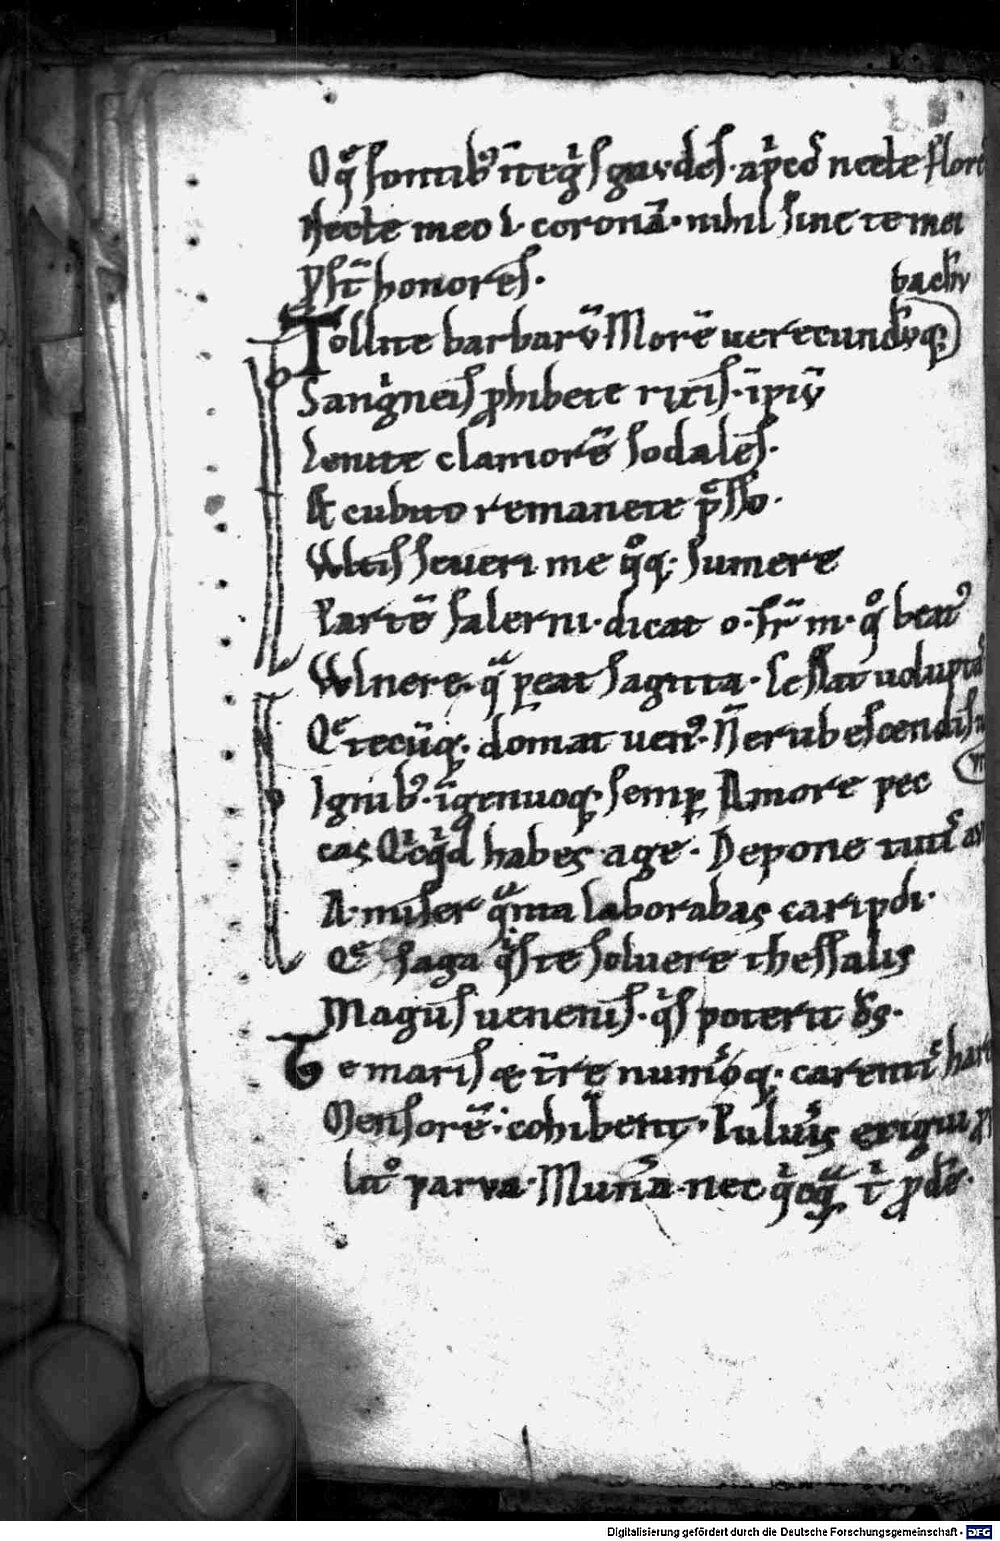 O q̄ fontib; īteg̃s gaudes. ap̃cos necte flor
Necte meo l. coronā. nihil sine te mei
p̃sūt honores.
bachu
Tollite barbarū Morē uerecundūq;
Sang̃neis p̱hibete rixis. īpiū
Lenite clamorē sodales.
Et cubito remanete p̃sso.
Wltis seueri me q̊q; sumere
Partē falerni. dicat o. fr̄ m. q̊ beat9
Wlnere. q̃ p̱eat sagitta. Cessat uolupta
Que tecūq; domat uen9. N̄ erubescendis
Ignib; īgenuoq; semp̱ Amore pec
cas Q̇cq̇d habes age. Depone tuti͛ a
A. miser q̃nta laborabas caripdi.
Que saga q̇s te soluere thessalis
Magus uenenis. q̇s poterit ds.
Te maris & t̄re num͛oq; carenti͛ har
Mensorē. cohibent. Puluis exigui p̱
lit̊ parva. Munera. nec q̇cq̃ t̓ p̱de.
Digitalisierung gefördert durch die Deutsche Forschungsgemeinschaft - DFG